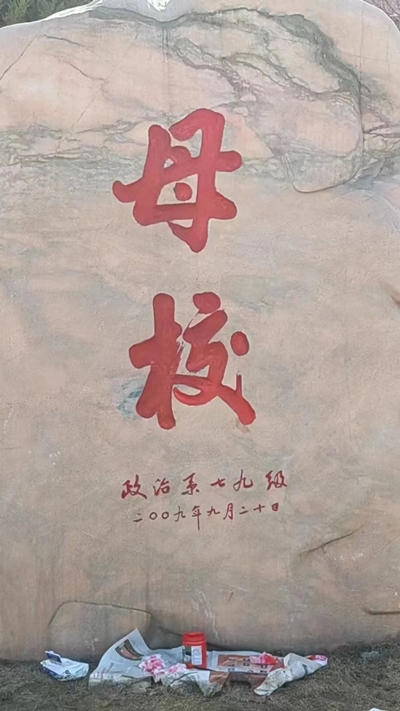 母
校
政治系七九级
二〇〇九年九月二十日